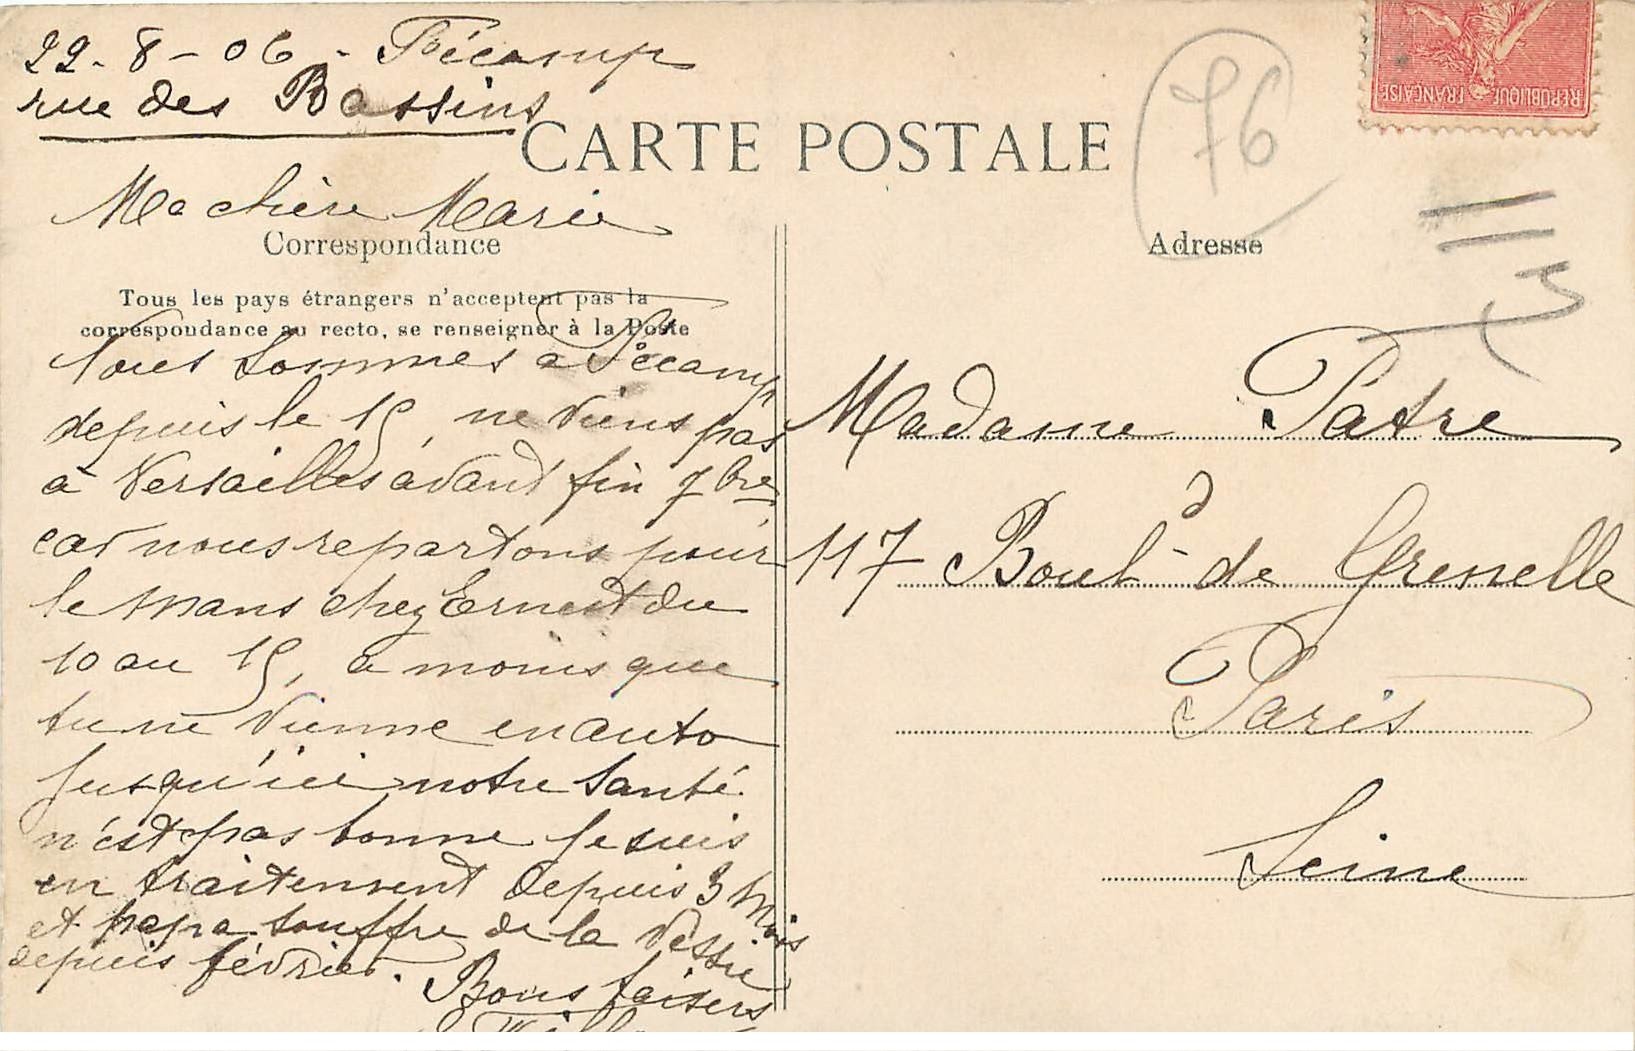 22-8-06 - Fécamp
rue des Bassins
CARTE POSTALE
76
REPUBLIQUE FRANÇAISE
Ma chère Marie
Correspondance
Tous les pays étrangers n'acceptent pas la
correspondance au recto, se renseigner à la Poste
Nous sommes a Fécamp
depuis le 15, ne viens pas
à Versailles avant fin 7bre
car nous repartons pour
le mans chez Ernest du
10 au 15, a moins que
tu ne vienne en auto
jusqu'ici notre santé
n'est pas bonne je suis
en traitement depuis 3 mois
et papa souffre de la vessie
depuis février. Bons baisers
Adresse
Madame Patre
117 Boul d de Grenelle
Paris
Seine